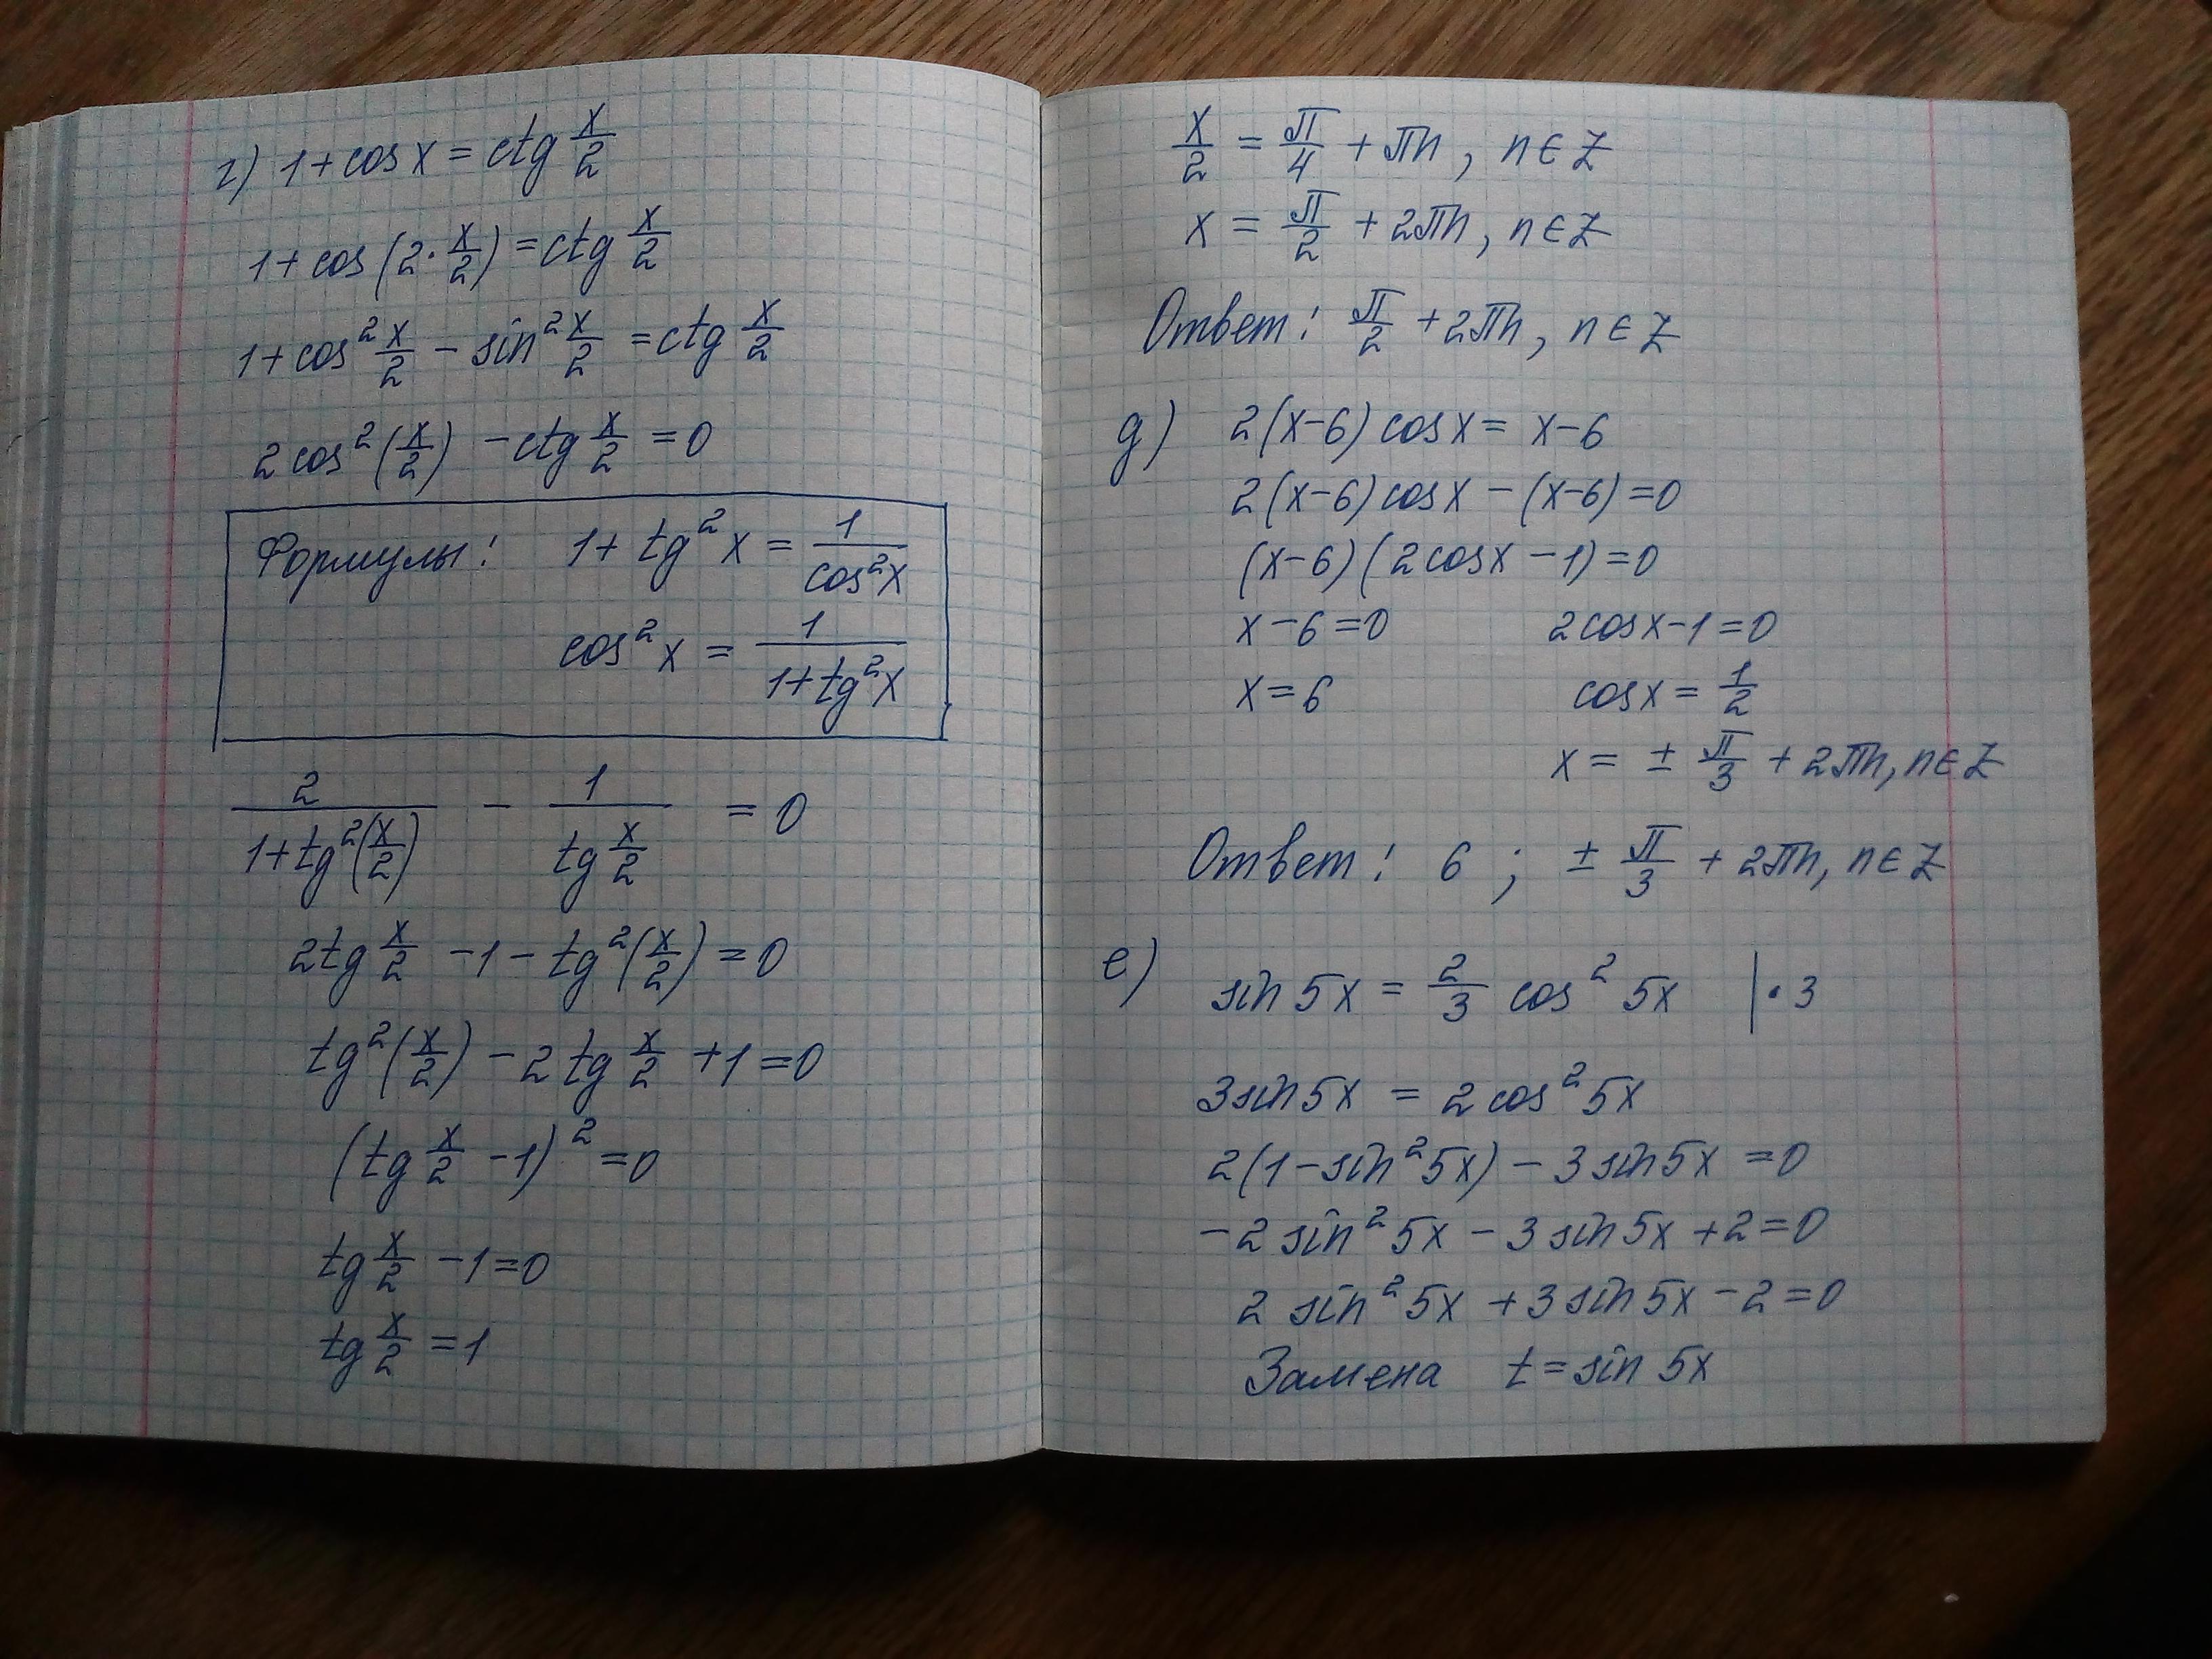 г) 1+cos x = ctg x/2
1+cos(2·x/2) = ctg x/2
1+cos² x/2 − sin² x/2 = ctg x/2
2cos²(x/2) − ctg x/2 = 0
Формулы: 1+tg²x = 1/cos²x
cos²x = 1/(1+tg²x)
2/(1+tg²(x/2)) − 1/(tg x/2) = 0
2tg x/2 − 1 − tg²(x/2) = 0
tg²(x/2) − 2tg x/2 + 1 = 0
(tg x/2 − 1)² = 0
tg x/2 − 1 = 0
tg x/2 = 1
x/2 = π/4 + πn, n∈Z
x = π/2 + 2πn, n∈Z
Ответ: π/2 + 2πn, n∈Z
д) 2(x−6)cos x = x−6
2(x−6)cos x − (x−6) = 0
(x−6)(2cos x − 1) = 0
x−6=0 2cos x−1=0
x=6 cos x = 1/2
x = ± π/3 + 2πn, n∈Z
Ответ: 6; ± π/3 + 2πn, n∈Z
е) sin 5x = 2/3 cos² 5x |·3
3sin 5x = 2cos² 5x
2(1−sin² 5x) − 3sin 5x = 0
−2 sin² 5x − 3 sin 5x + 2 = 0
2 sin² 5x + 3 sin 5x − 2 = 0
Замена t = sin 5x